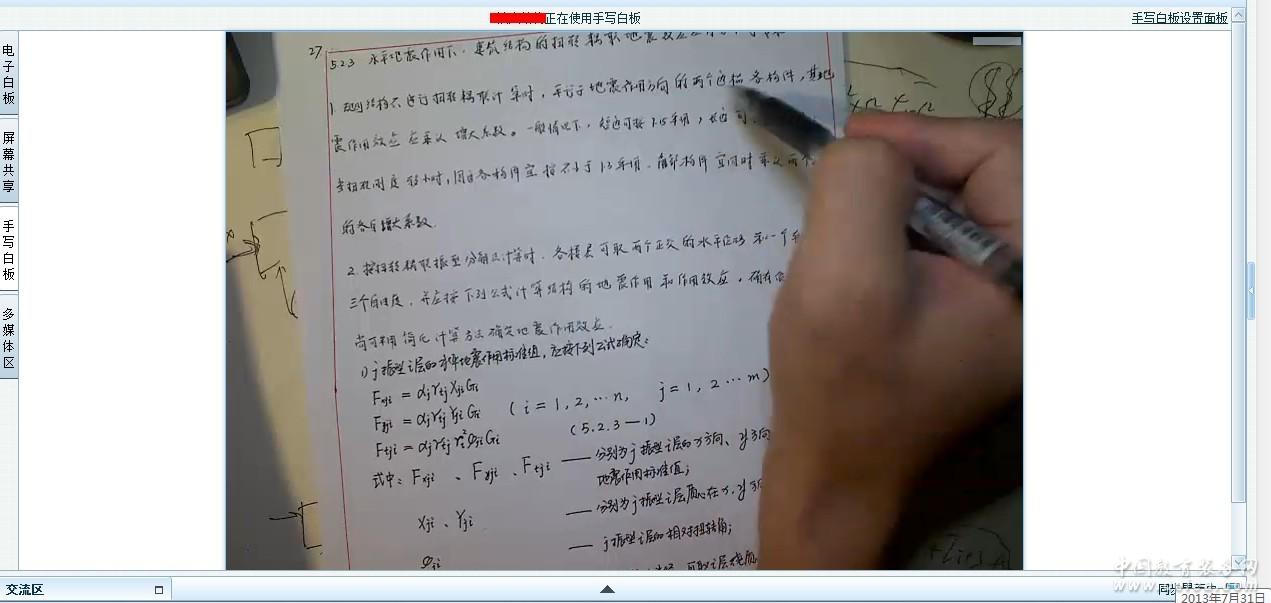 正在使用手写白板
手写白板设置面板
电子白板
屏幕共享
手写白板
多媒体区
27
5.2.3 水平地震作用下,建筑结构的扭转耦联地震效应
1. 规则结构不进行扭转耦联计算时,平行于地震作用方向的两个边榀各构件,其地
震作用效应应乘以增大系数。一般情况下,短边可按1.15采用,长边可
当扭转刚度较小时,周边各构件宜按不小于1.3采用。角部构件宜同时乘以两个
的各自增大系数.
2. 按扭转耦联振型分解法计算时,各楼层可取两个正交的水平位移和一个
三个自由度,并应按下列公式计算结构的地震作用和作用效应。确有
尚可采用简化计算方法确定地震作用效应.
1) j振型i层的水平地震作用标准值,应按下列公式确定:
Fxji = αjγtjXjiGi
Fyji = αjγtjYjiGi (i=1,2,…n, j=1,2…m)
Ftji = αjγtjri²φjiGi (5.2.3—1)
式中: Fxji、Fyji、Ftji —— 分别为j振型i层的x方向、y方向
地震作用标准值;
Xji、Yji —— 分别为j振型i层质心在x、y方
φji —— j振型i层的相对扭转角;
交流区
中国教育装备网
2013年7月31日